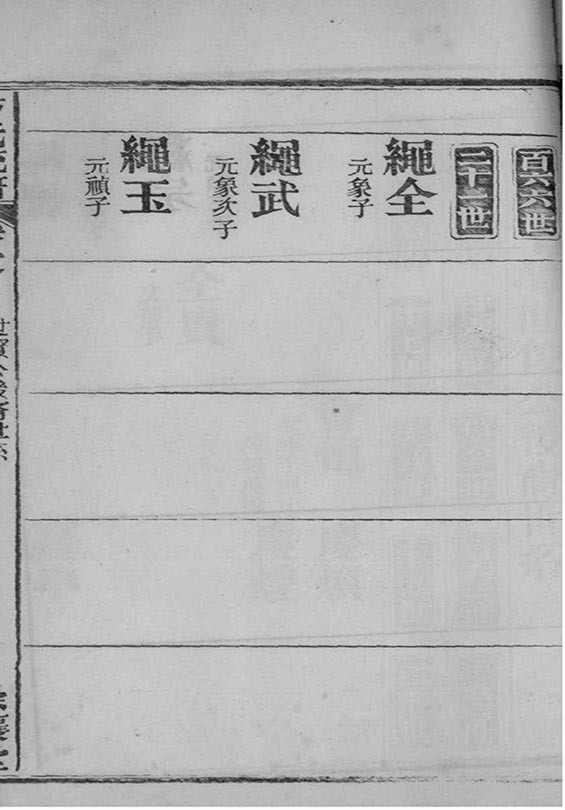 百六六世
二十一世
繩全
元象子
繩武
元象次子
繩玉
元禎子